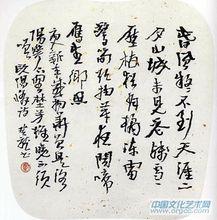 春風疑不到天涯二
月山城未見花殘雪
壓枝猶有橘凍雷
驚筍欲抽芽夜聞
雁生鄉思
病入新年感物華曾是洛
陽花下客野芳雖晚不須
嗟 歐陽修詩
中国文化艺术网
www.orgcc.com